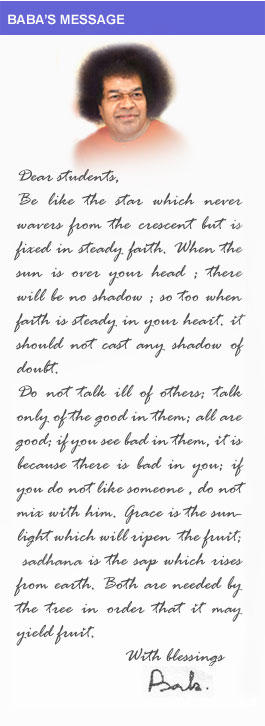 BABA'S MESSAGE
Dear students,
Be like the star which never
wavers from the crescent but is
fixed in steady faith. When the
sun is over your head ; there
will be no shadow ; so too when
faith is steady in your heart. it
should not cast any shadow of
doubt.
Do not talk ill of others; talk
only of the good in them; all are
good; if you see bad in them, it is
because there is bad in you; if
you do not like someone , do not
mix with him. Grace is the sun-
light which will ripen the fruit;
sadhana is the sap which rises
from earth. Both are needed by
the tree in order that it may
yield fruit.
With blessings
Baba.